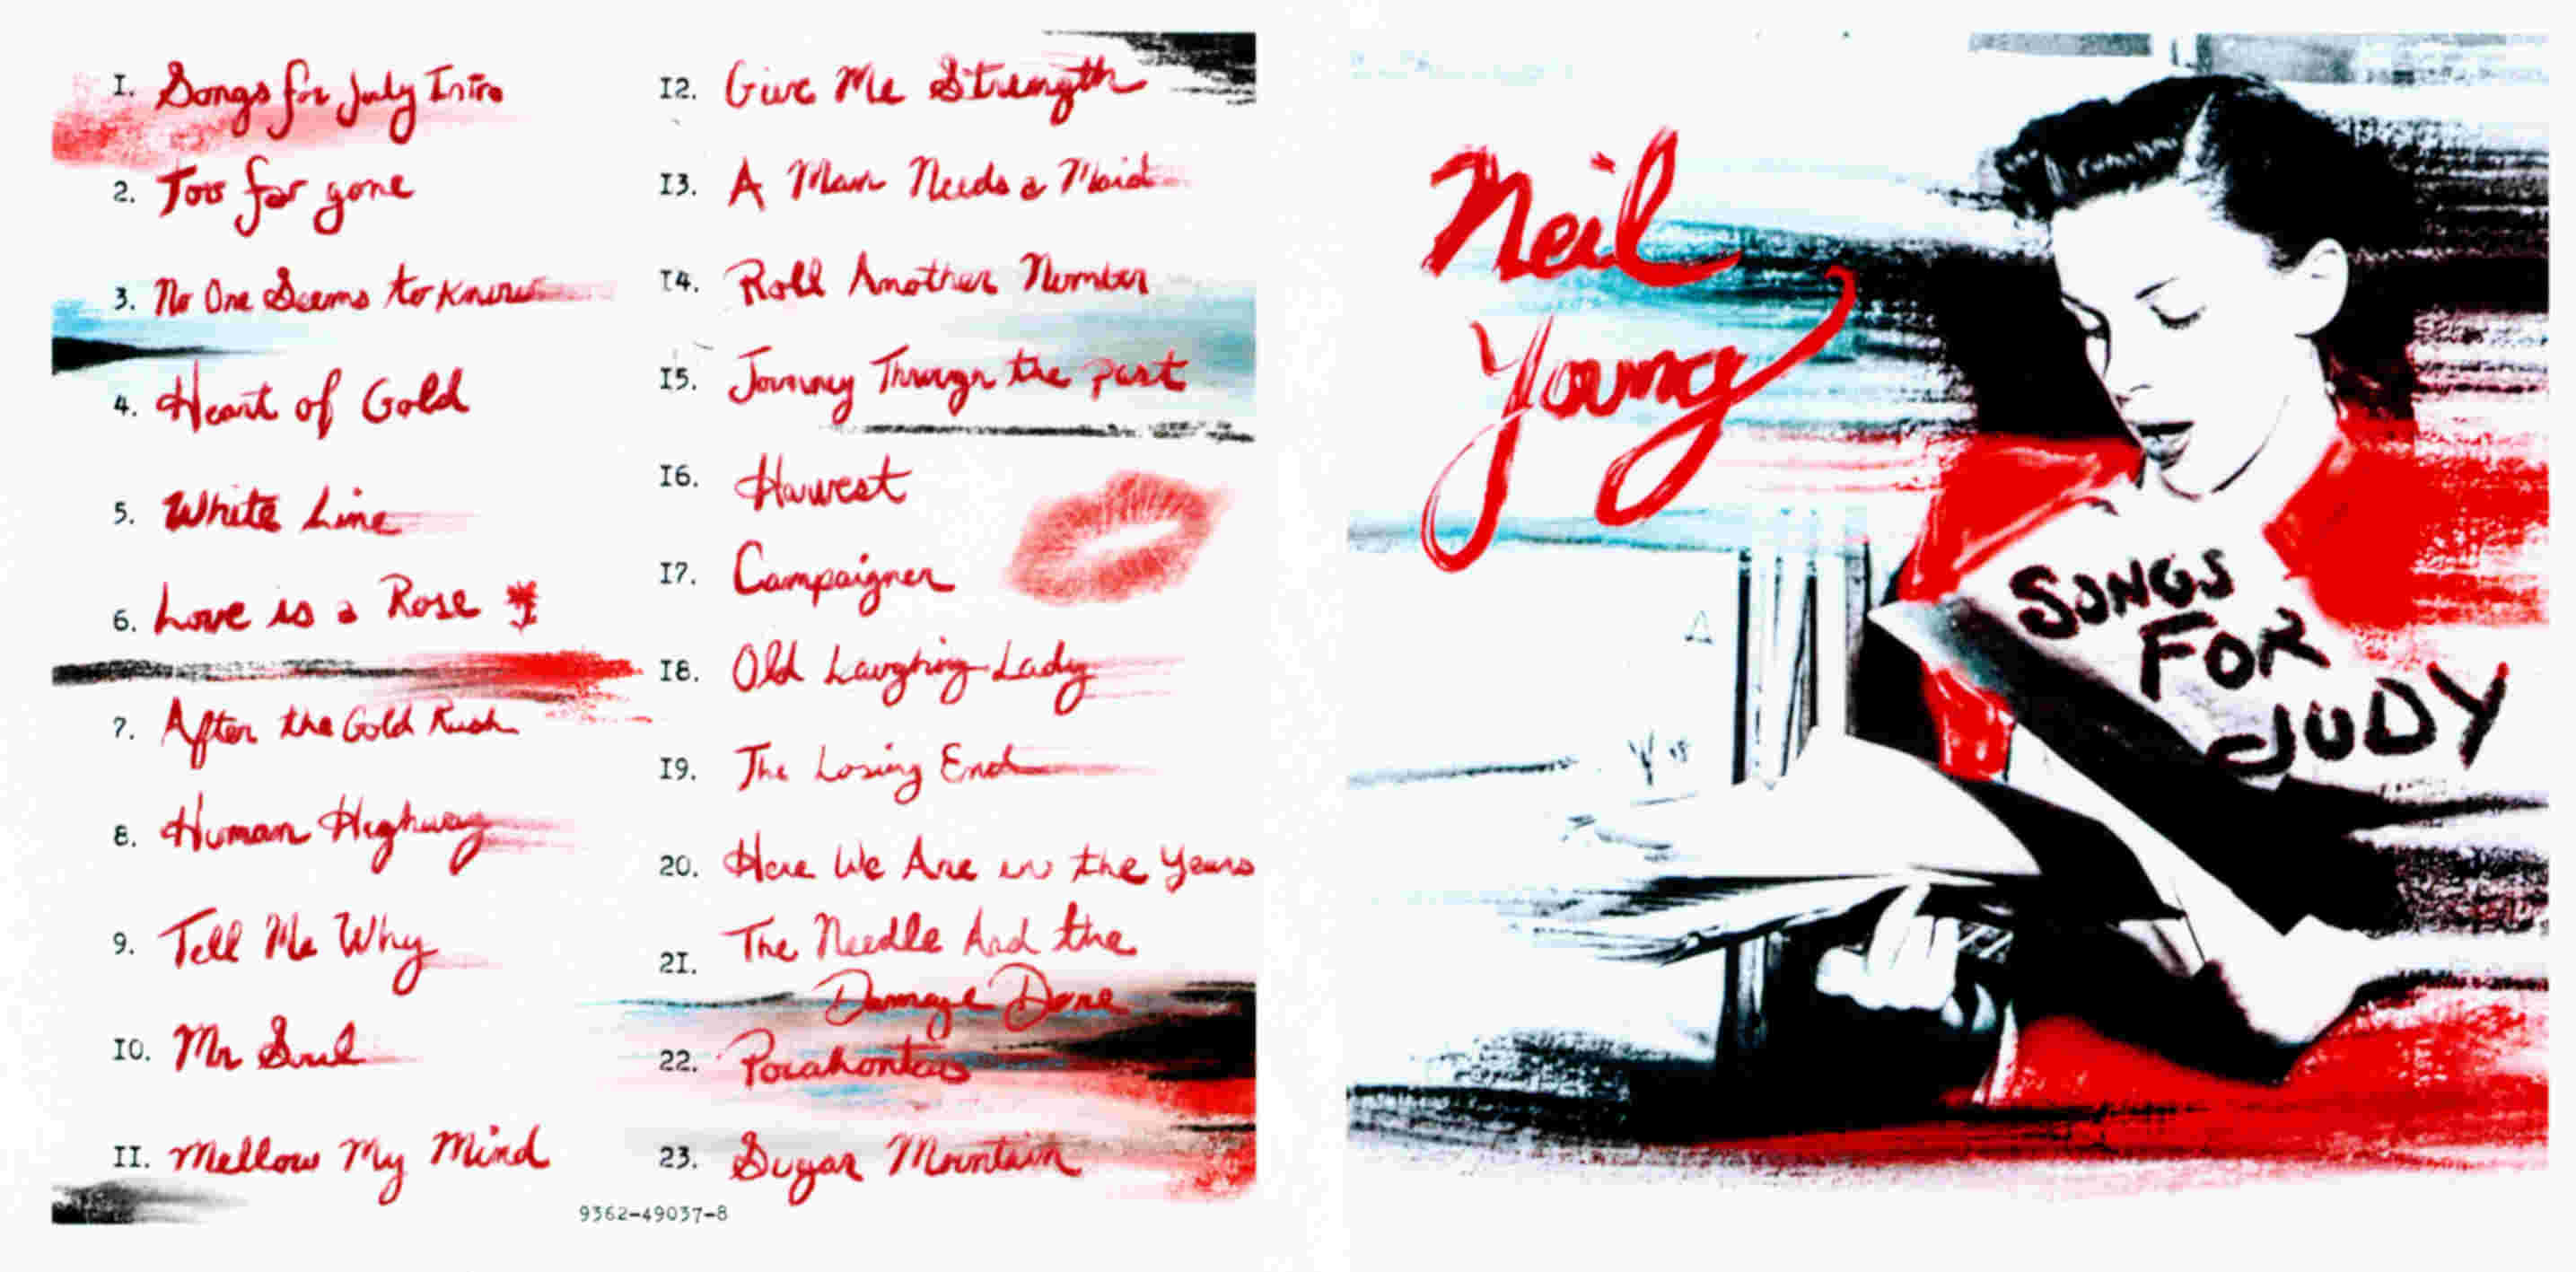 1. Songs for Judy Intro
2. Too far gone
3. No One Seems to Know
4. Heart of Gold
5. White Line
6. Love is a Rose
7. After the Gold Rush
8. Human Highway
9. Tell Me Why
10. Mr Soul
11. Mellow My Mind
9362-49037-8
12. Give Me Strength
13. A Man Needs a Maid
14. Roll Another Number
15. Journey Through the past
16. Harvest
17. Campaigner
18. Old Laughing Lady
19. The Losing End
20. Here We Are in the Years
21. The Needle And the
Damage Done
22. Pocahontas
23. Sugar Mountain
Neil
Young
SONGS
FOR
JUDY